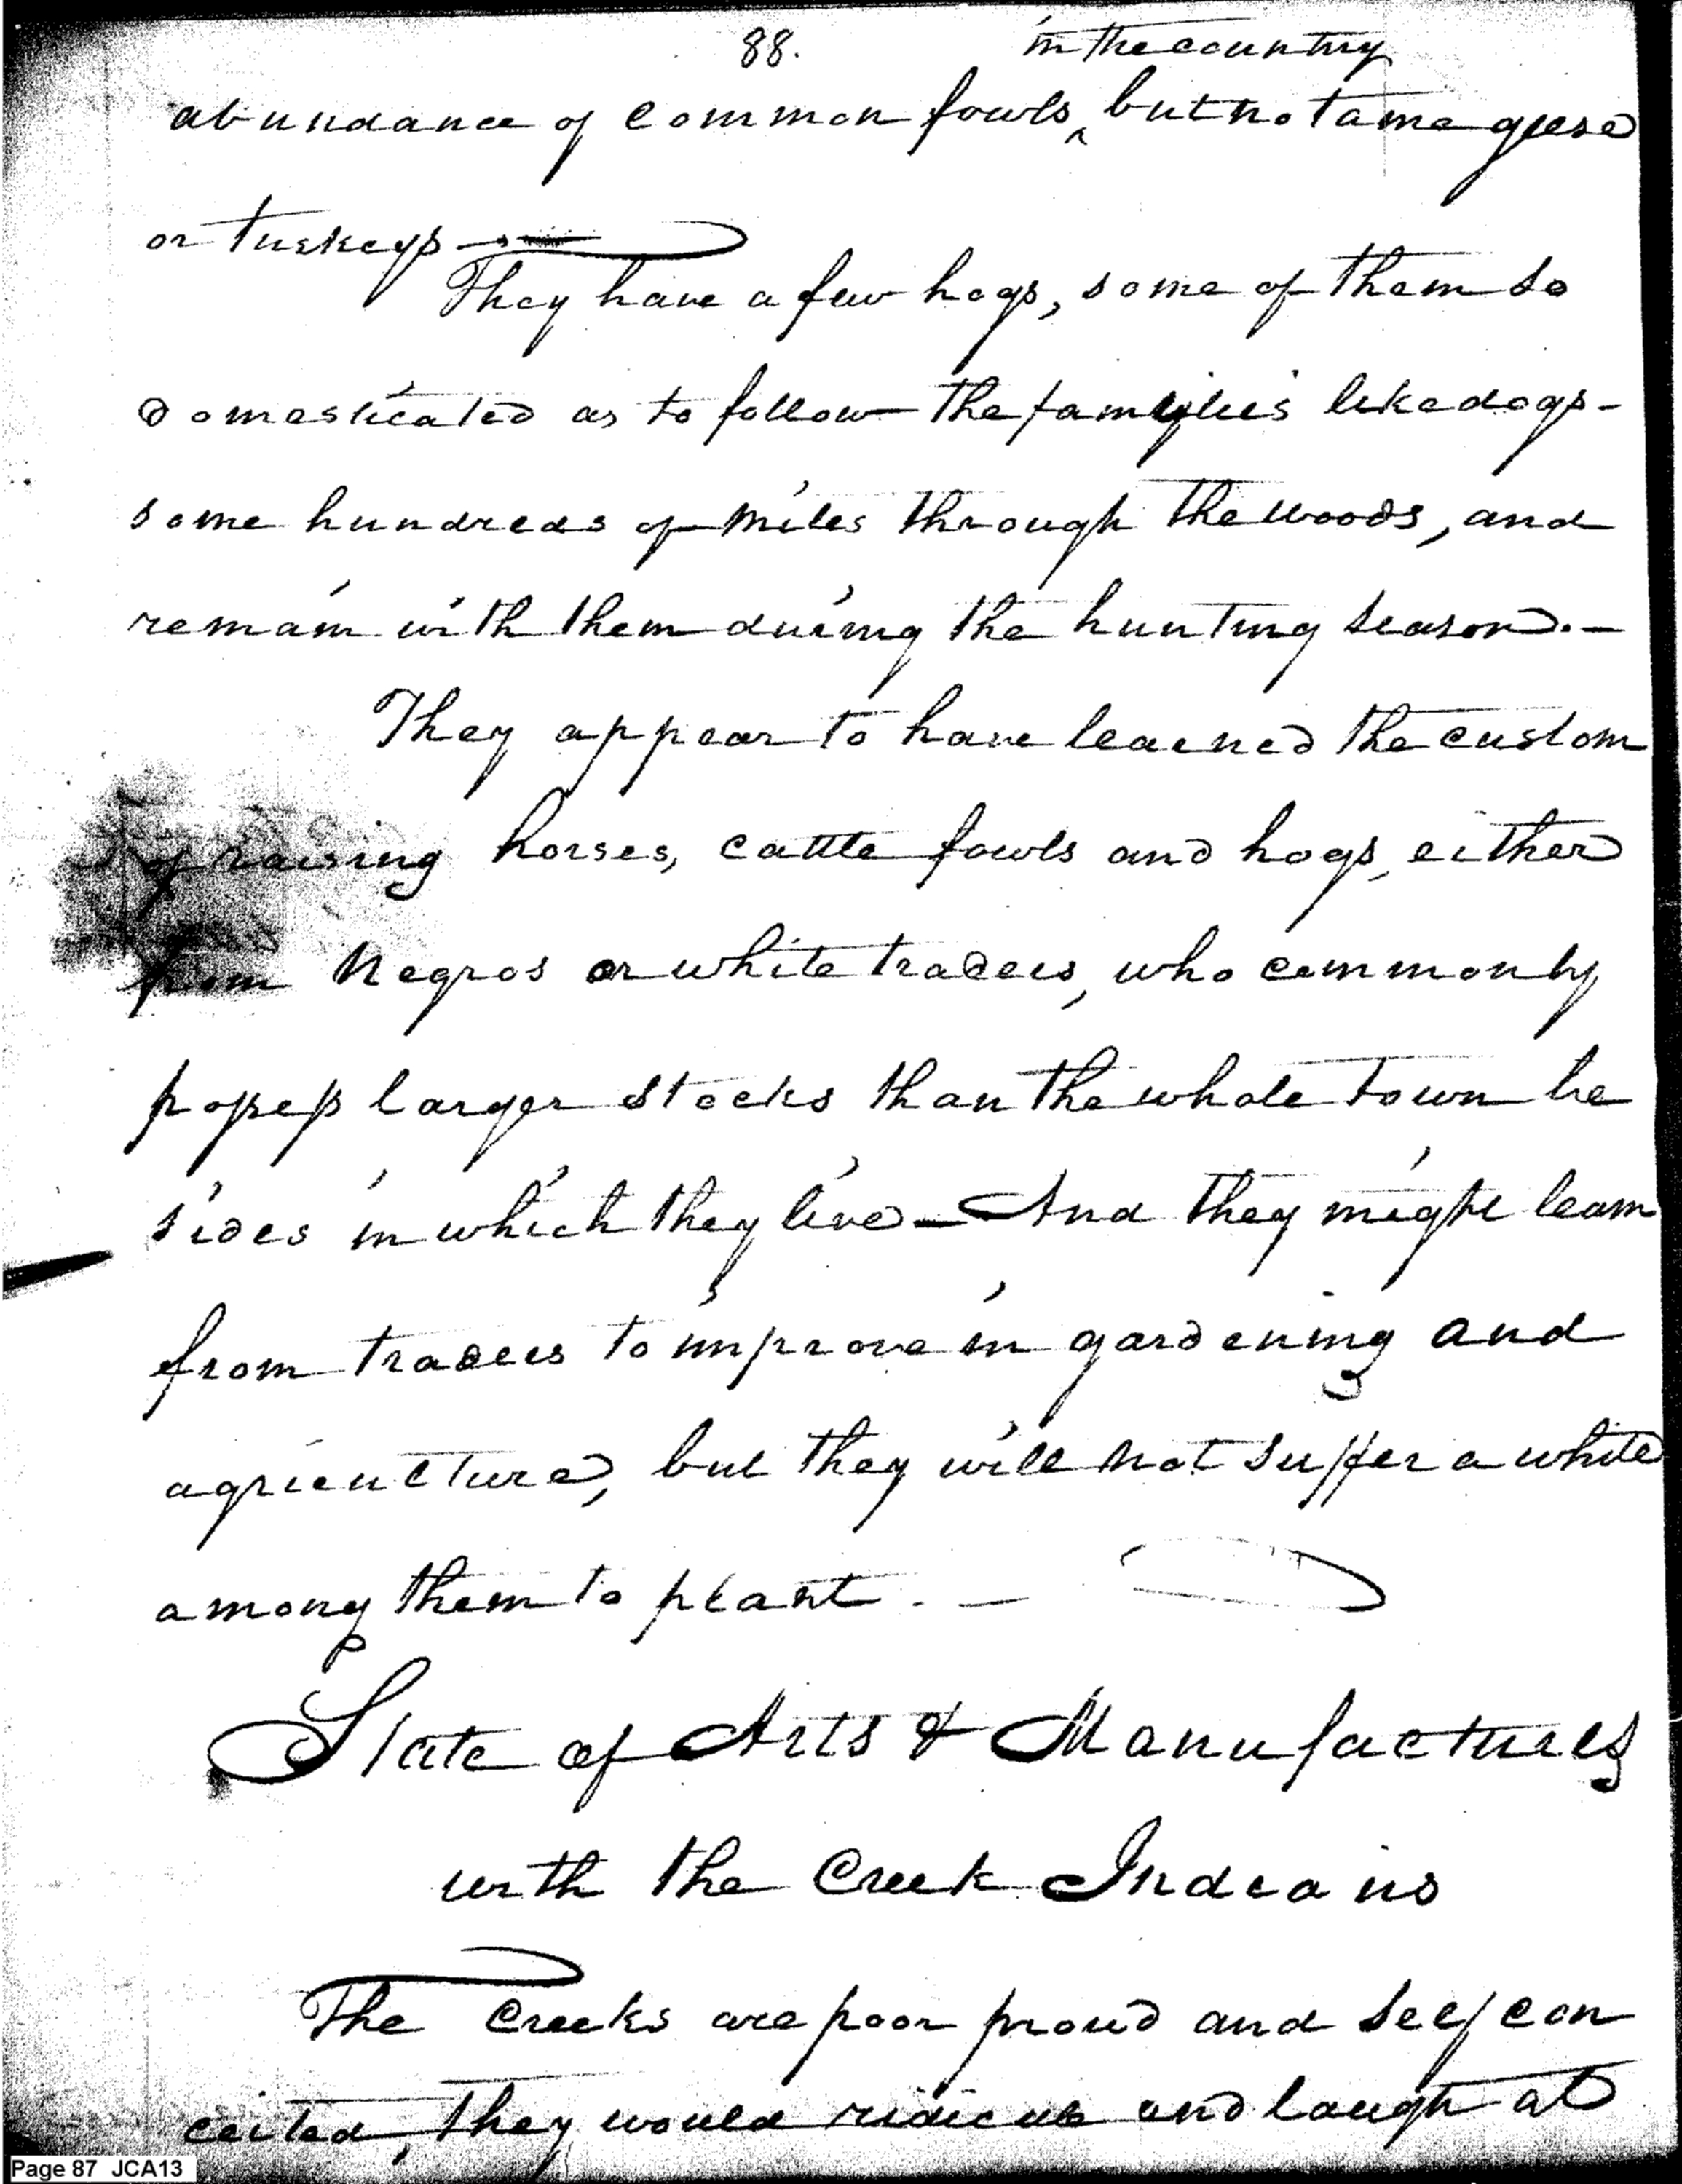 88.
in the country
abundance of common fowls ^ but no tame geese
or turkeys —
They have a few hogs, some of them so
domesticated as to follow the families like dogs -
some hundreds of miles through the woods, and
remain with them during the hunting season. —
They appear to have learned the custom
of raising horses, cattle fowls and hogs, either
from Negros or white traders, who commonly
possess larger stocks than the whole town be
sides in which they live — And they might learn
from traders to improve in gardening and
agriculture, but they will not suffer a white
among them to plant. —
State of Arts & Manufactures
with the Creek Indians
The Creeks are poor proud and self con
ceited, they would ridicule and laugh at
Page 87 JCA13